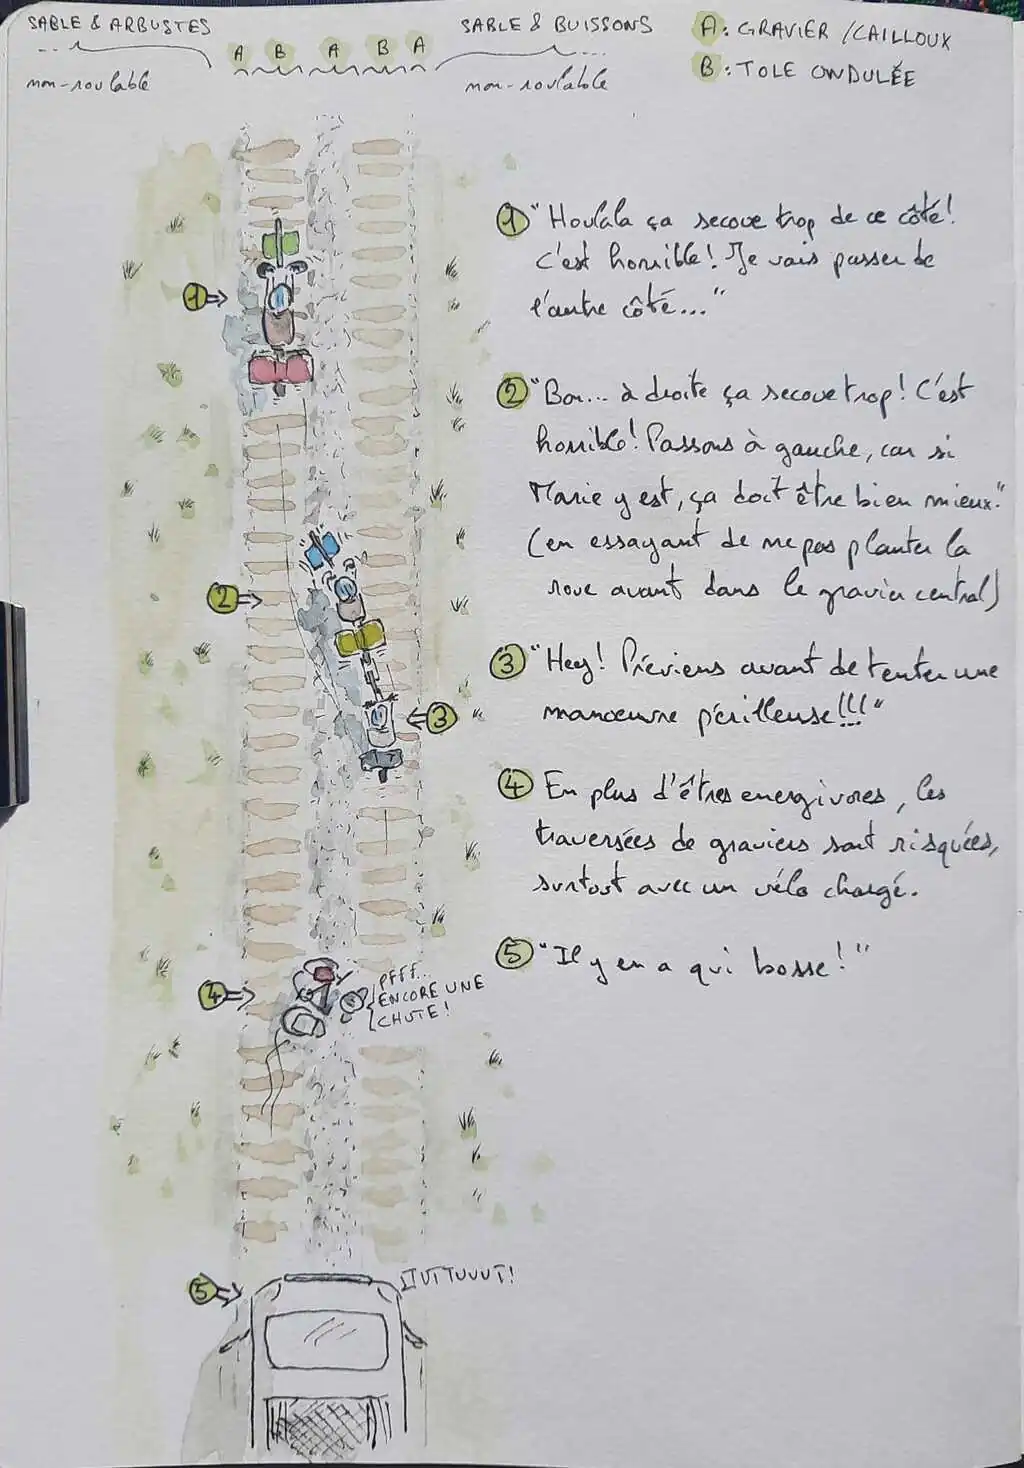 SABLE & ARBUSTES
non-roulable
A B A B A
SABLE & BUISSONS
non-roulable
A: GRAVIER / CAILLOUX
B: TOLE ONDULÉE
1 "Houlala ça secoue trop de ce côté!
C'est horrible! Je vais passer de
l'autre côté..."
2 "Bon... à droite ça secoue trop! C'est
horrible! Passons à gauche, car si
Marie y est, ça doit être bien mieux."
(en essayant de ne pas planter la
roue avant dans le gravier central)
3 "Hey! Préviens avant de tenter une
manœuvre périlleuse!!!"
4 En plus d'êtres energivores, les
traversées de graviers sont risquées,
surtout avec un vélo chargé.
5 "Il y en a qui bosse!"
1
2
3
4
PFFF...
ENCORE UNE
CHUTE!
5
TUT TUUUT!